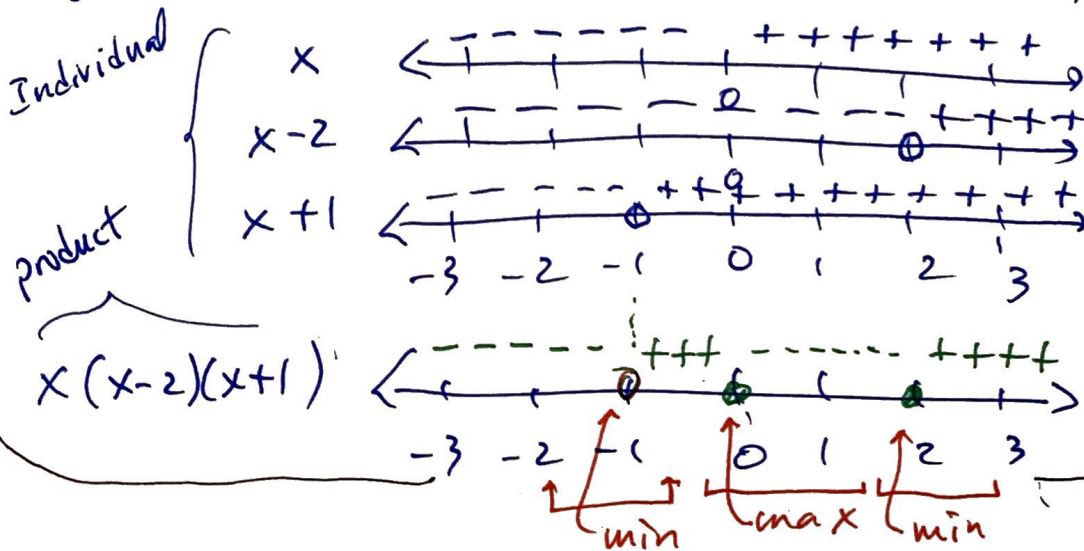 Individual
x - - - - - - + + + + + + +
0
x-2 - - - - - - - + + + +
x+1 - - - - - + + 0 + + + + + + + +
-3 -2 -1 0 1 2 3
product
x(x-2)(x+1) - - - - - - + + + - - - - - - - + + + +
-3 -2 -1 0 1 2 3
min max min